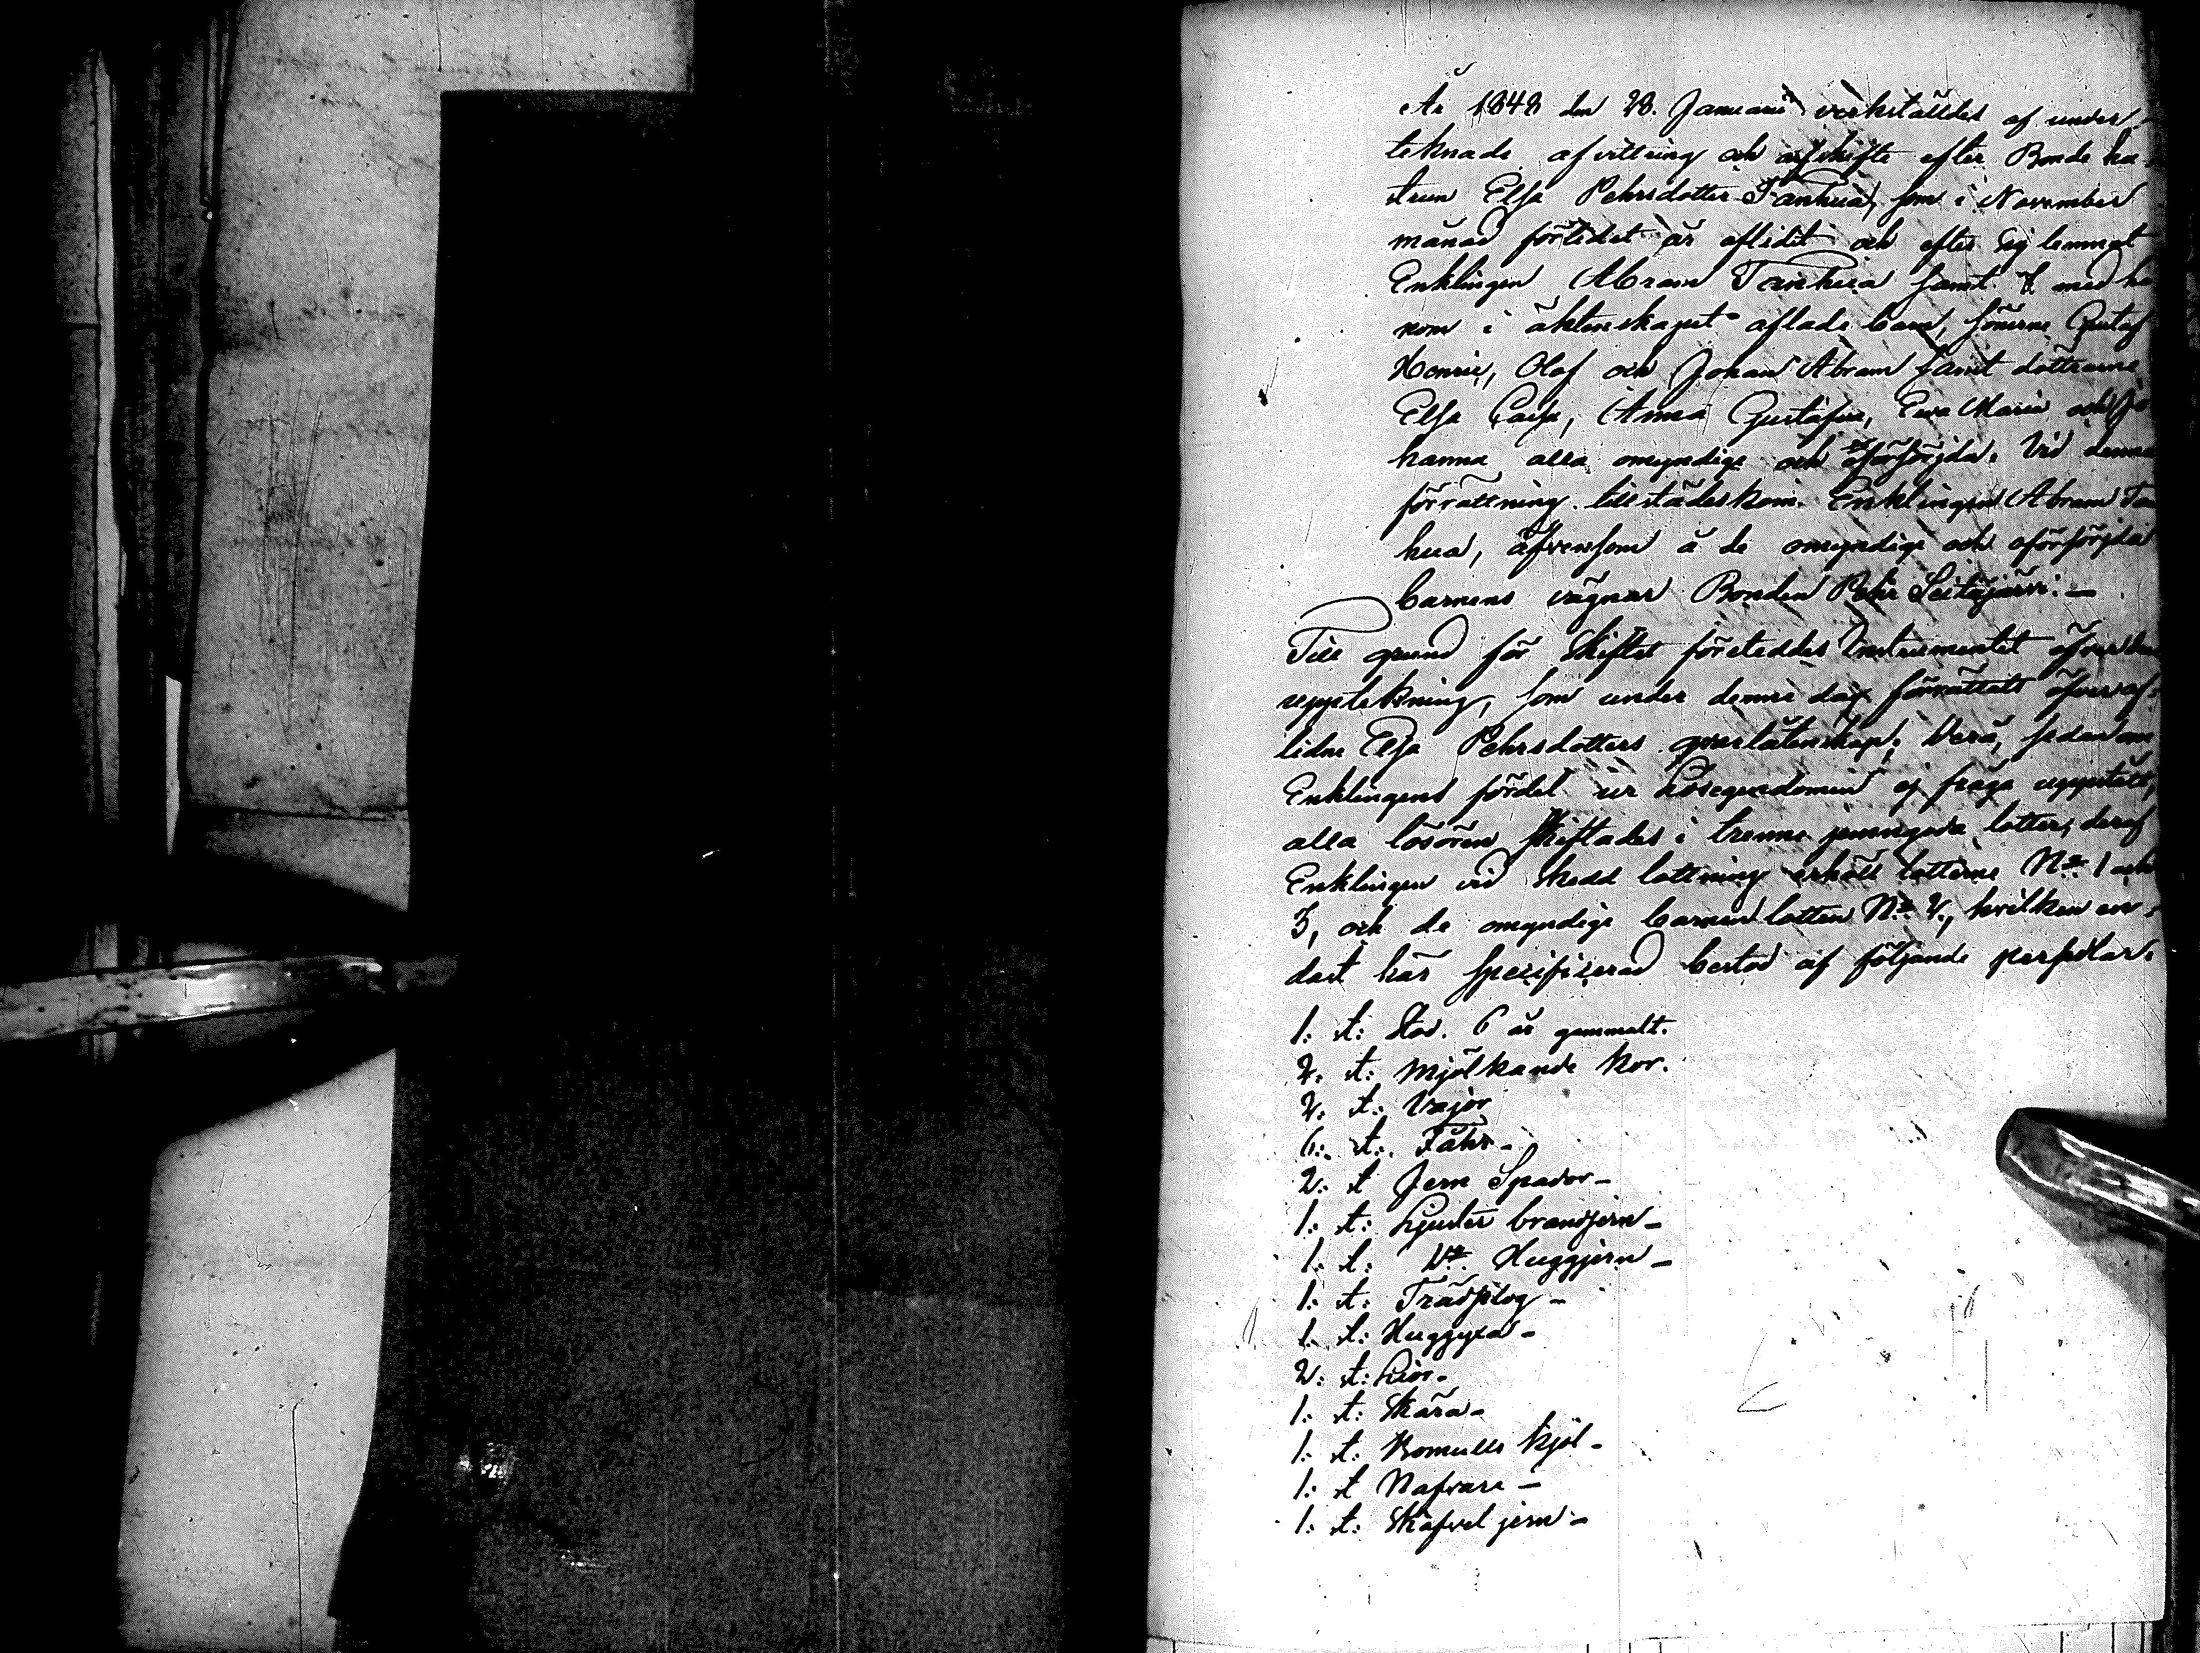 År 1848 den 28. Januarii verkställdes af under-
teknade afvittring och arfskifte efter Bonde hu-
strun Elsa Pehrsdotter Tanhua, som i November
månad förledet år aflidit och efter sig lemnat
Enklingen Abram Tanhua samt 7 med ho
nom i äktenskapet aflade barn, sönerne Gustaf
Henric, Olof och Johan Abram samt döttrarne
Elsa Caisa, Anna Gustafva, Eva Maria och Jo
hanna alla omyndige och oförsörjda. Vid denna
förrättning tillstädeskom Enklingen Abram Tan
hua, äfvensom å de omyndige och oförsörjda
barnens vägnar Bonden Pehr Seitajärvi. —
Till grund för skiftet företeddes Instrumentet öfver den
uppteckning, som under denne dag förrättats öfver af-
lidne Elsa Pehrsdotters qvarlåtenskap; Derå, sedan om
Enklingens fördel ur lösegendomen ej fråga uppstått,
alla lösören skiftades i trenne jemngoda lotter, deraf
Enklingen vid skedd lottning erhöll lotterne No. 1 och
3, och de omyndige barnen lotten No 2., hvilken en-
dast här specificerad bestod af följande perselar.
1: st: Sto. 6 år gammalt.
2. st: Mjölkande kor.
2. st: Vajor
6: st: Fåhr -
2: st Jern Spador -
1: st: Ljuster brandjern -
1: st: Do. Huggjern -
1: st: Trädplog -
1: st: Huggyxa -
2: st: Liar -
1: st: Skära -
1: st: Bomulls kjol -
1: st Nafvare -
1: st: Skafvel jern -